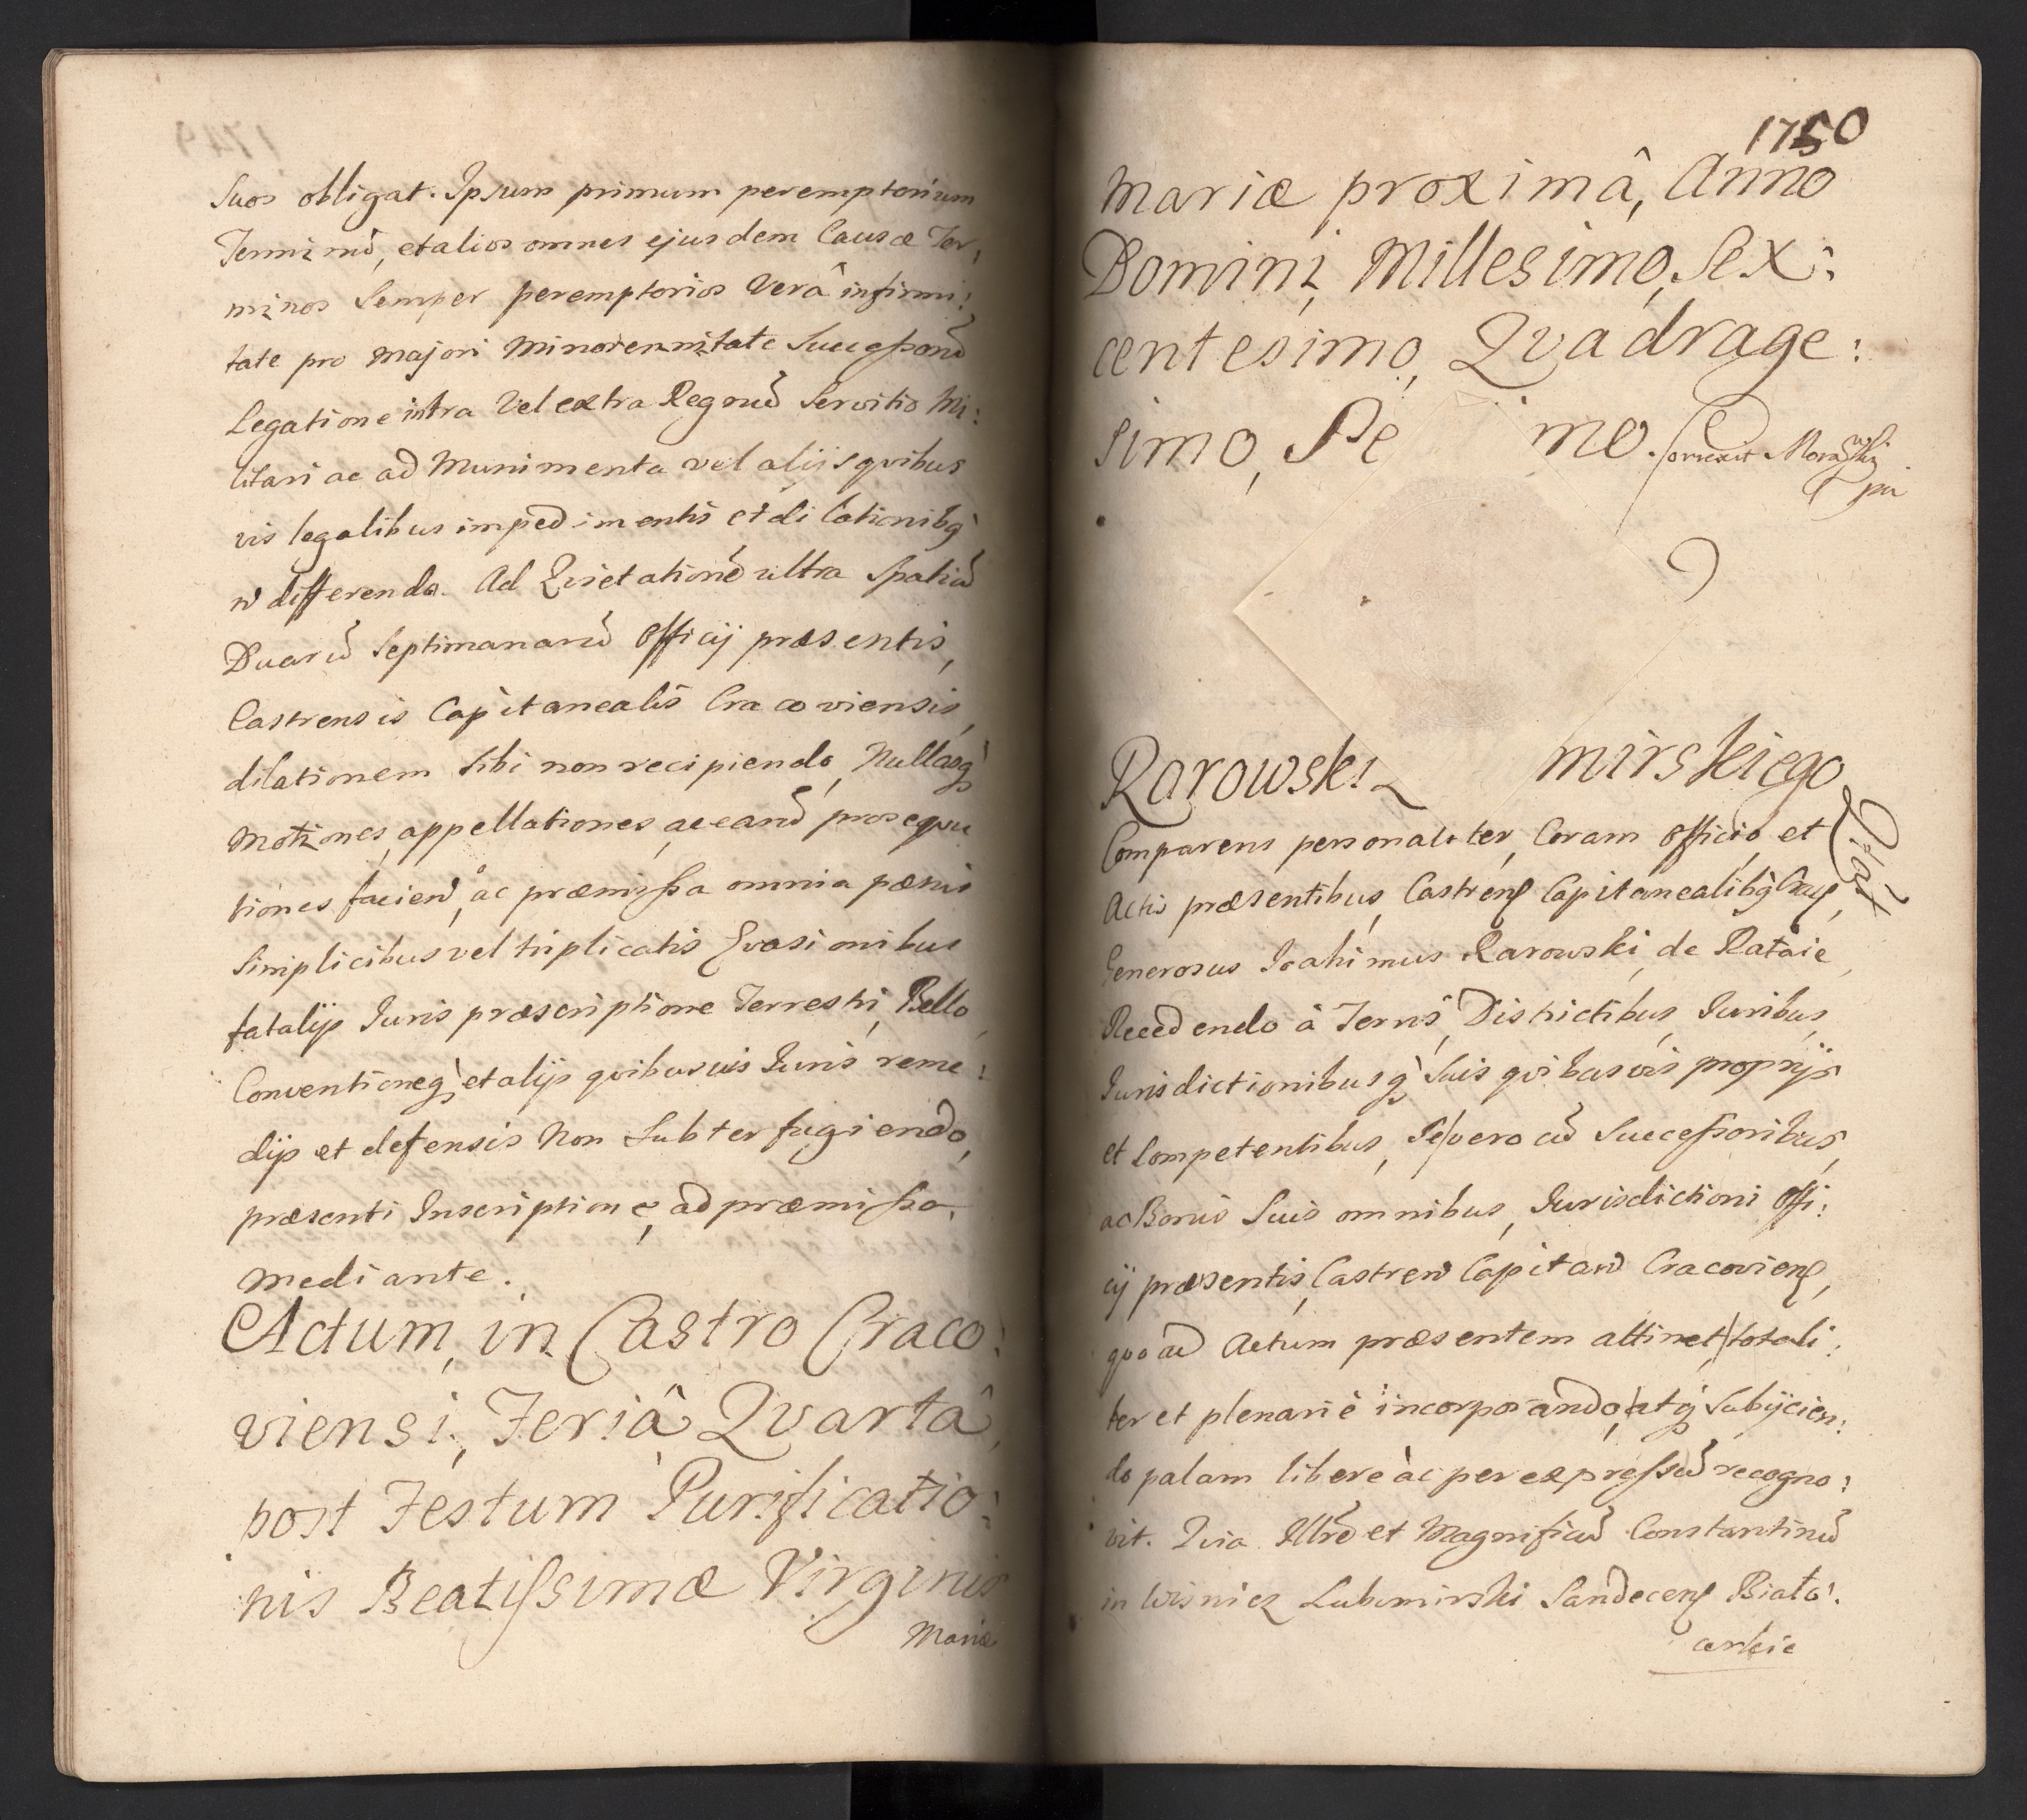 Suos obligat. Ipsum primum peremptorium
Terminū, et alios omnes ejusdem Causæ Ter,
minos Semper peremptorios Verâ infirmi:
tate pro majori Minorennitate Successorū
Legatione intra Vel extra Regnū Servitio Mi:
litari ac ad Munimenta vel alijs qvibus
vis legalibus impedimentis et dilationibq
ñ differendo. Ad Qvietationē ultra Spatiū
Duarū Septimanarū Officij præsentis,
Castrensis Capitanealis Cracoviensis,
dilationem Sibi non recipiendo, Nullasq
Motiones, appellationes, ac earū prosequu
tiones faciend, ac præmissa omnia pœnis
Simplicibus vel triplicatis Evasionibus
fatalijs Juris præscriptione Terrestri, Bello,
Conventioneq, et alijs qvibusvis Juris reme:
dijs et defensis Non Subterfugiendo,
præsenti Inscriptione, ad præmissa,
mediante.
Actum, in Castro Craco:
viensi, Feriâ Qvartâ,
post Festum Purificatio:
nis Beatissimæ Virginis
Mariæ
1750
Mariæ proximâ, Anno
Domini Millesimo, Sex:
centesimo, Qvadrage:
simo, Se mo. Correxit Morawski
mp
Rarowski mirskiego
Comparens personaliter, Coram Officio et
Actis præsentibus, Castren Capitanealibq Crac,
Generosus Joahimus Rarowski, de Rataie,
Recedendo à Terris, Districtibus, Juribus,
Jurisdictionibusq Suis qvibusvis proprijs
et Competentibus, Se vero cū Successoribus,
ac Bonis Suis omnibus, Jurisdictioni Offi:
cij præsentis, Castren Capitan Cracovien,
qvo ad Actum præsentem attinet totali:
ter et plenariè incorporando, atq Subijcien:
do palam liberè àc per expressū recogno:
vit. Qvia Illrē et Magnificū Constantinū
in Wisnicz Lubomirski Sandecen Biało:
cerkie